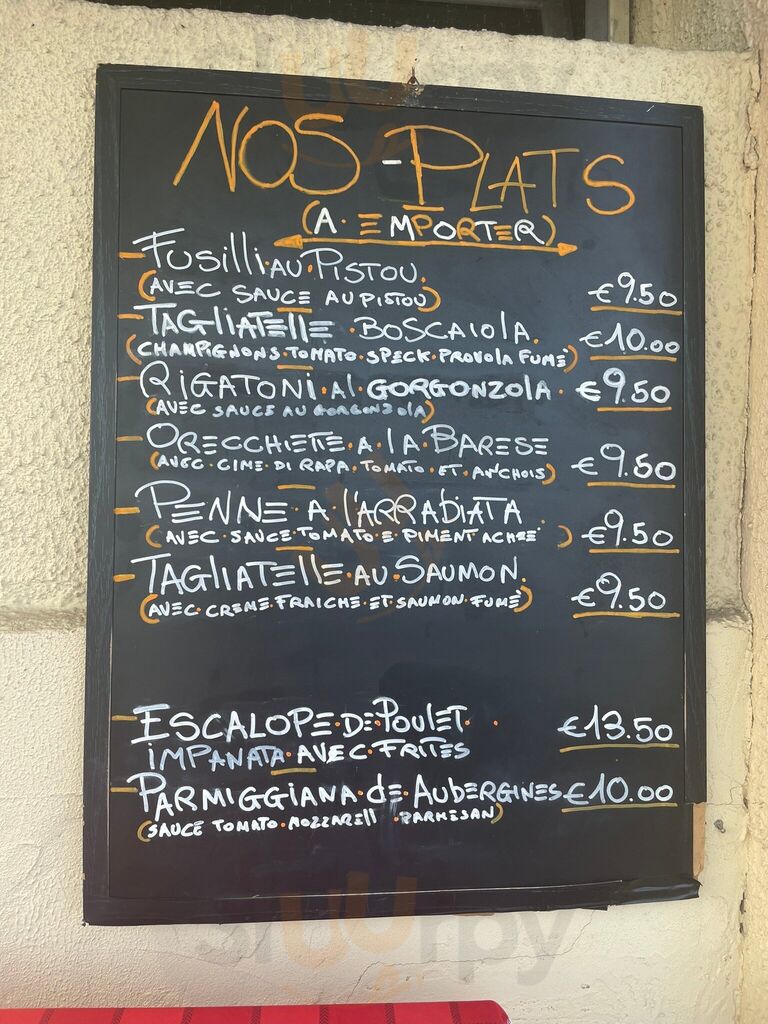 NOS - PLATS
(A · EMPORTER)
FUSILLI · AU · PISTOU.
(AVEC SAUCE AU PISTOU)
€9.50
TAGLIATELLE · BOSCAIOLA.
(CHAMPIGNONS · TOMATO · SPECK · PROVOLA FUMÈ)
€10.00
RIGATONI · AL · GORGONZOLA ·
(AVEC SAUCE AU GORGONZOLA)
€9.50
ORECCHIETTE · A · LA · BARESE
(AVEC · CIME · DI RAPA · TOMATO · ET · ANCHOIS)
€9.50
PENNE · A L'ARRABIATA
(AVEC · SAUCE · TOMATO · E PIMENT ACHEE)
€9.50
TAGLIATELLE · AU · SAUMON.
(AVEC · CREME · FRAICHE · ET · SAUMON · FUMÈ)
€9.50
ESCALOPE · DE · POULET
IMPANATA · AVEC · FRITES
€13.50
PARMIGGIANA · dE · AUBERGINES €10.00
(SAUCE TOMATO · MOZZARELL · PARMESAN)
sluurpy